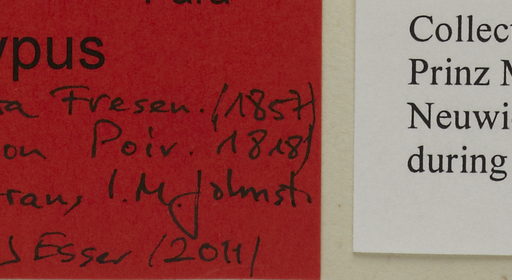 ypus
Fresen. (1857)
on Poir. 1818)
I.M. Johnst.
Esser (2011)
Collect
Prinz M
Neuwi
during